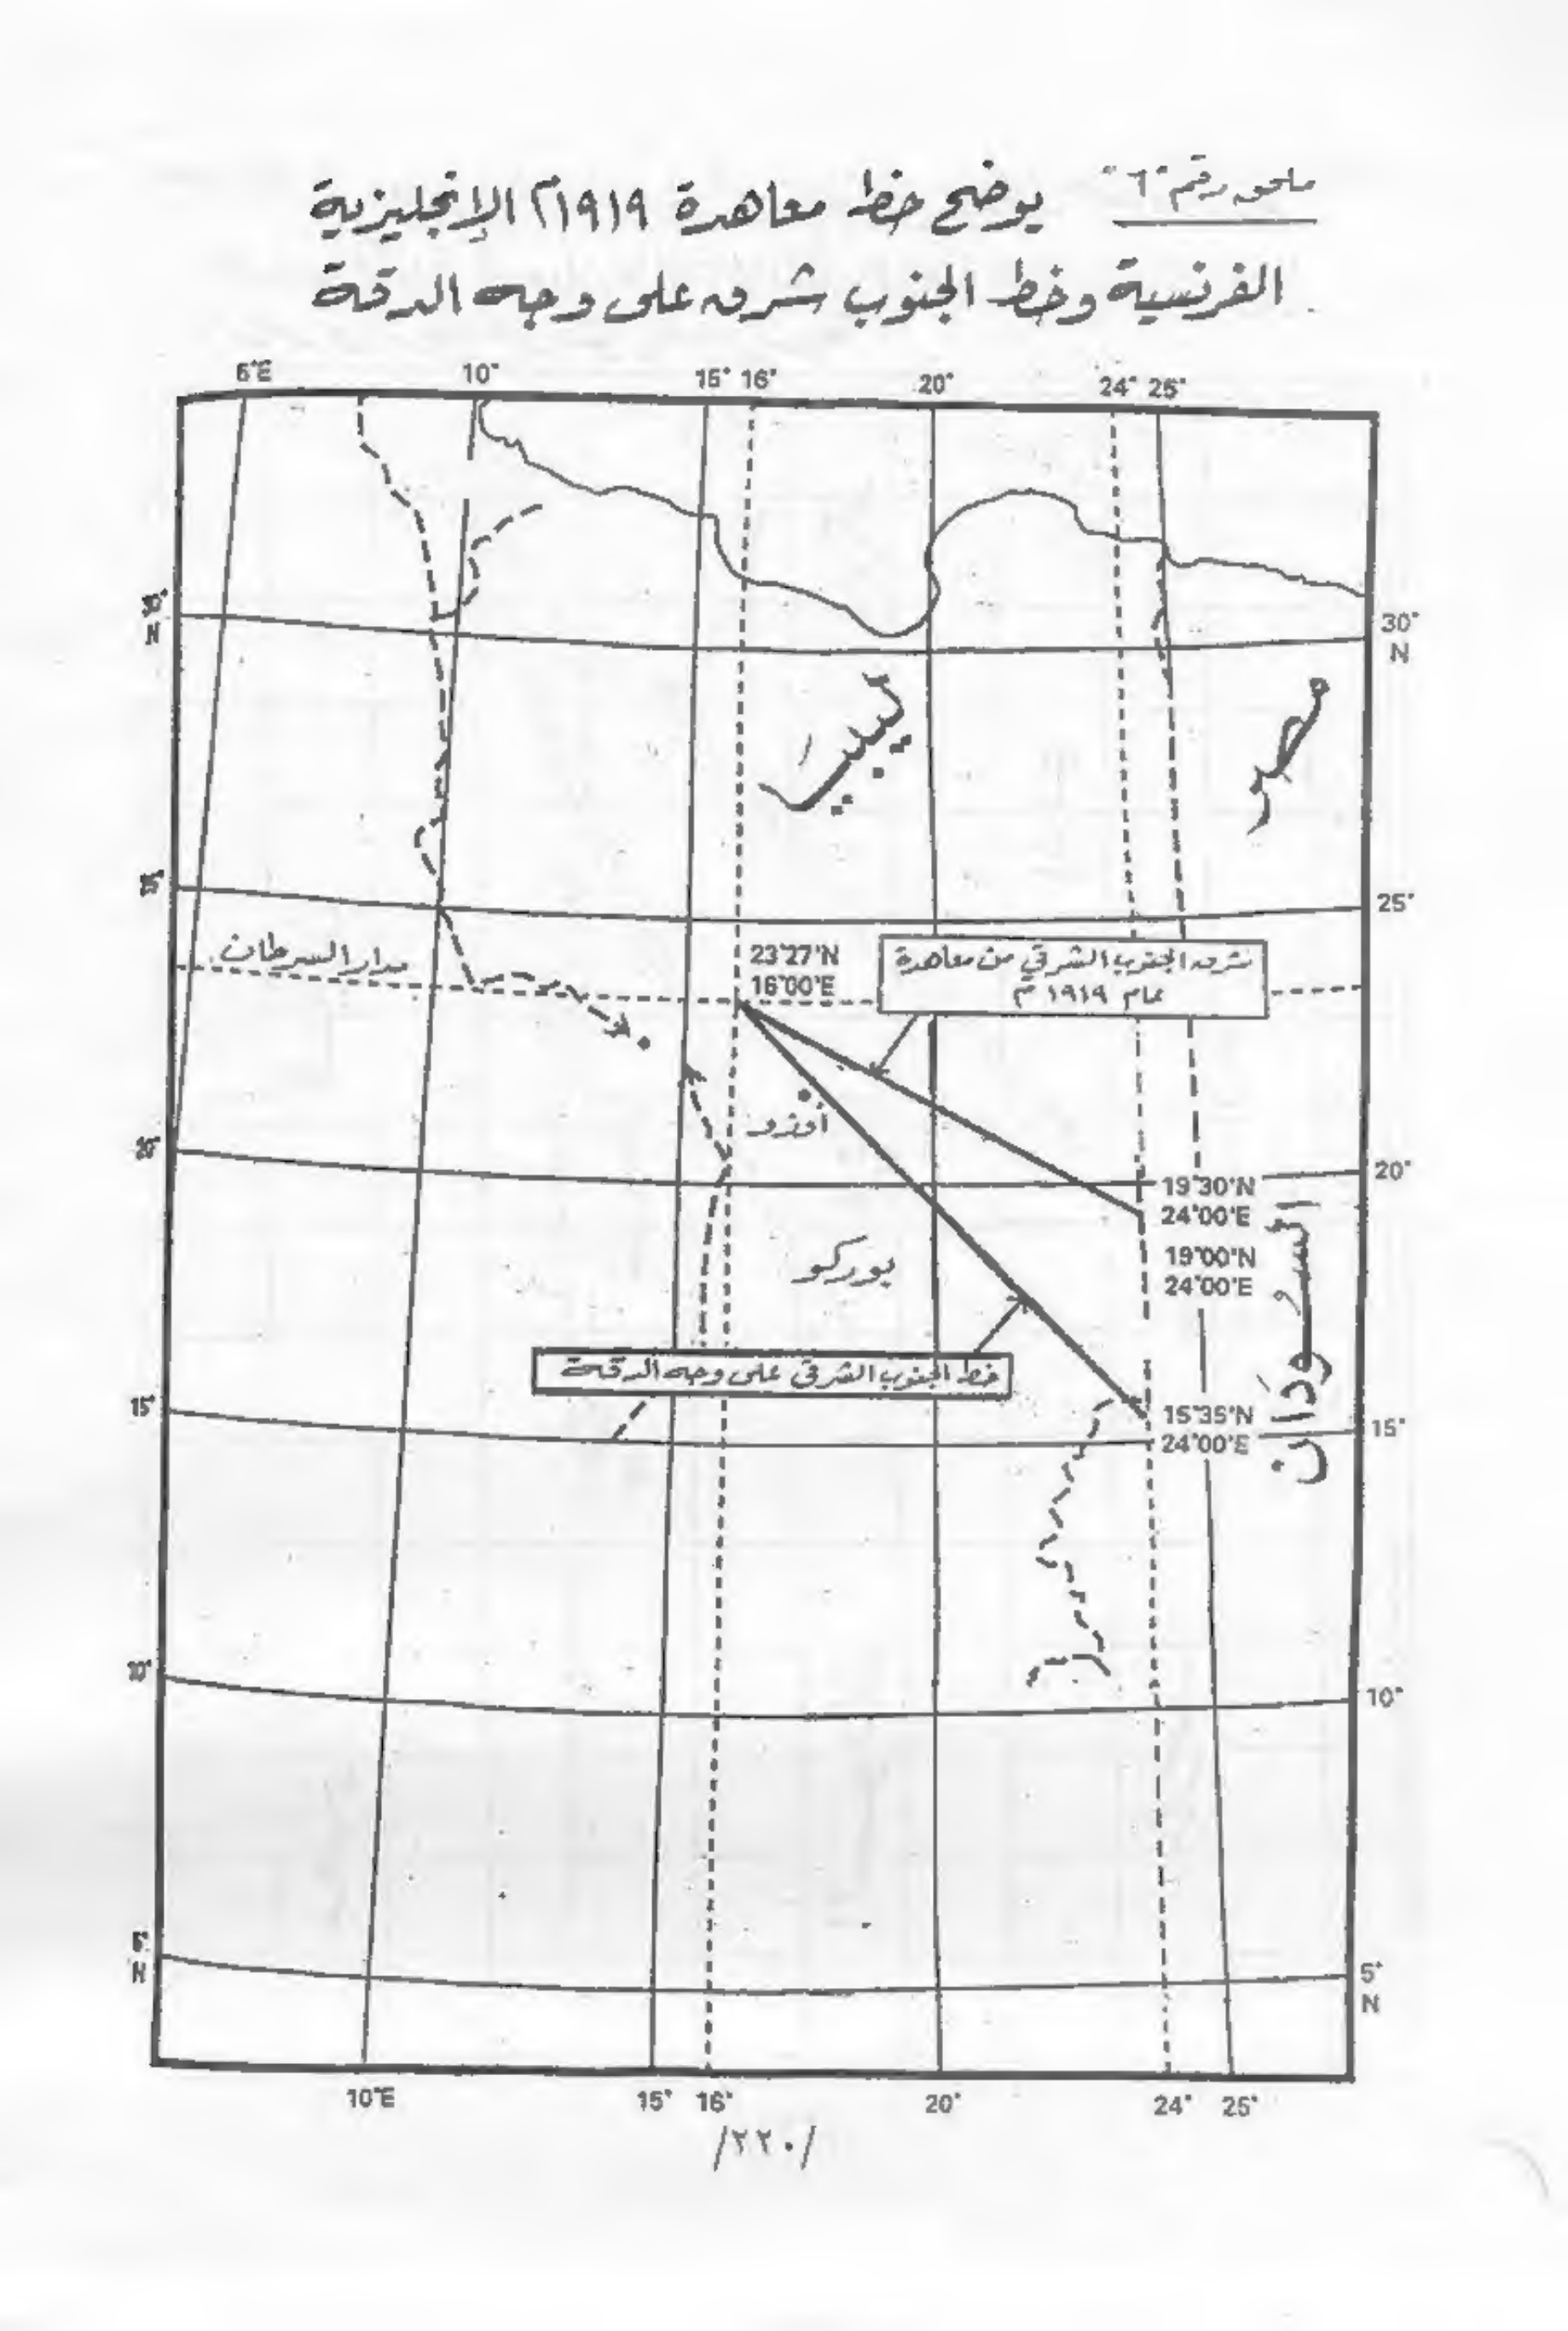 ملحق رقم "٦" يوضح خط معاهدة ١٩١٩م الإنجليزية
الفرنسية وخط الجنوب شرق على وجه الدقة
10° 15° 16° 20° 24° 25°
30°
N
30°
N
ليبيا
مصر
25°
مدار السرطان
23°27'N
16°00'E
شرق الجنوب الشرقي من معاهدة
عام ١٩١٩م
أوزو
20°
20°
19°30'N
24°00'E
19°00'N
24°00'E
السودان
بوركو
خط الجنوب الشرقي على وجه الدقة
15°
15°35'N
24°00'E
15°
10°
10°
5°
N
10°E 15° 16° 20° 24° 25°
/٢٢٠/